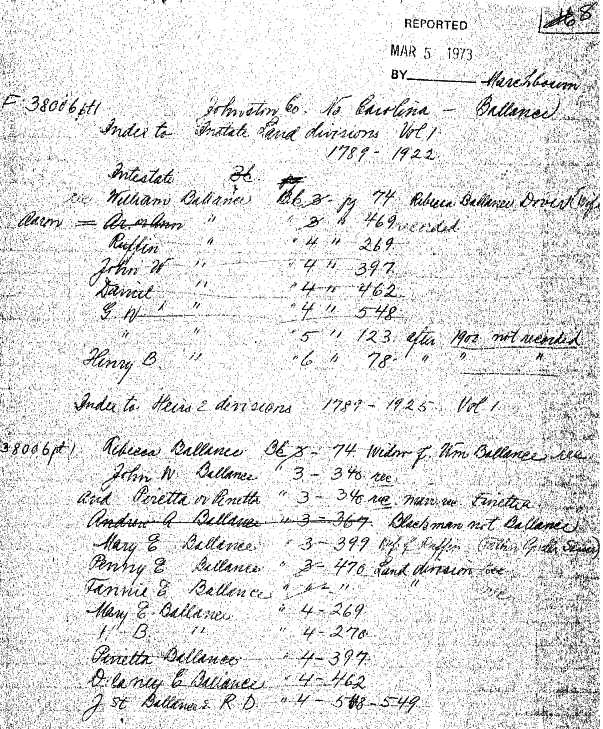 68
REPORTED
MAR 5 1973
BY Marchbourn
F 38006 pt 1 Johnston Co. No Carolina - Ballance
Index to Instate Land divisions Vol 1
1789 - 1922
Intestate
rec William Ballance Bk 3 - pg 74 Rebecca Ballance Dower
Aaron = Ar. or Ann " 3 " 469 recorded
Ruffin " " 4 " 269
John W " " 4 " 397
Daniel " " 4 " 462
G W " " 4 " 548
" " " 5 " 123 after 1900 not recorded
Henry B. " " 6 " 78 " " "
Index to Heirs & devisions 1789 - 1925 Vol 1
38006 pt 1 Rebecca Ballance Bk 3 - 74 Widow of Wm Ballance rec
John W Ballance " 3 - 340 rec
and Peretta or Penetta " 3 - 340 rec. man rec. Finetta
Andrew A Ballance " 3 - 367. Blackman not Ballance
Mary E Ballance " 3 - 399 wif of Ruffin
Penny E Ballance " 3 - 470 Land division rec
Fannie E Ballance " " - " " rec
Mary E Ballance " 4 - 269
" B. " " 4 - 270
Penetta Ballance " 4 - 397
Delaney E Ballance " 4 - 462
J St Ballance & R D " 4 - 548 - 549